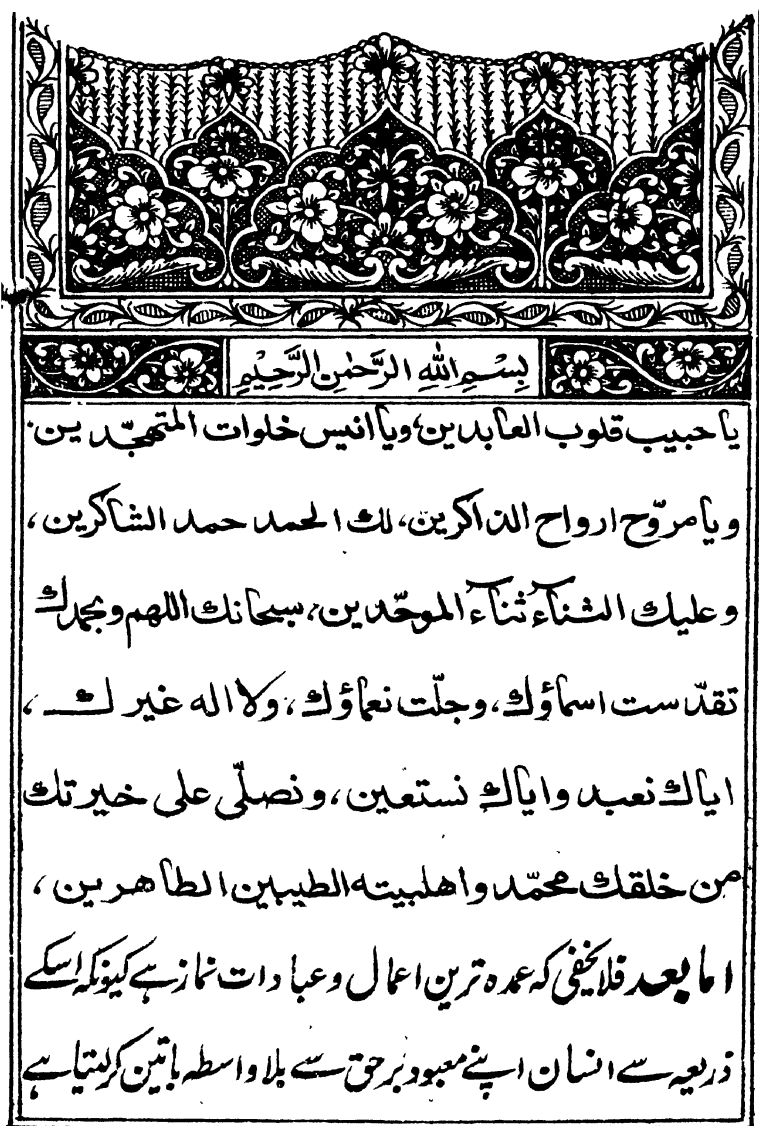 بِسْمِ اللهِ الرَّحْمٰنِ الرَّحِيْمِ
يا حبيب قلوب العابدين، ويا انيس خلوات المتهجّدين.
ويا مروّح ارواح الذاكرين، لك الحمد حمد الشاكرين،
وعليك الثناء ثناء الموحّدين، سبحانك اللهم وبحمدك
تقدّست اسماؤك، وجلّت نعماؤك، ولا اله غيرك،
اياك نعبد واياك نستعين، ونصلّي على خيرتك
من خلقك محمّد واهلبيته الطيبين الطاهرين،
اما بعد فلا یخفی کہ عمدہ ترین اعمال وعبادات نماز ہے کیونکہ اسکے
ذریعہ سے انسان اپنے معبود برحق سے بلا واسطہ باتین کرلیتا ہے